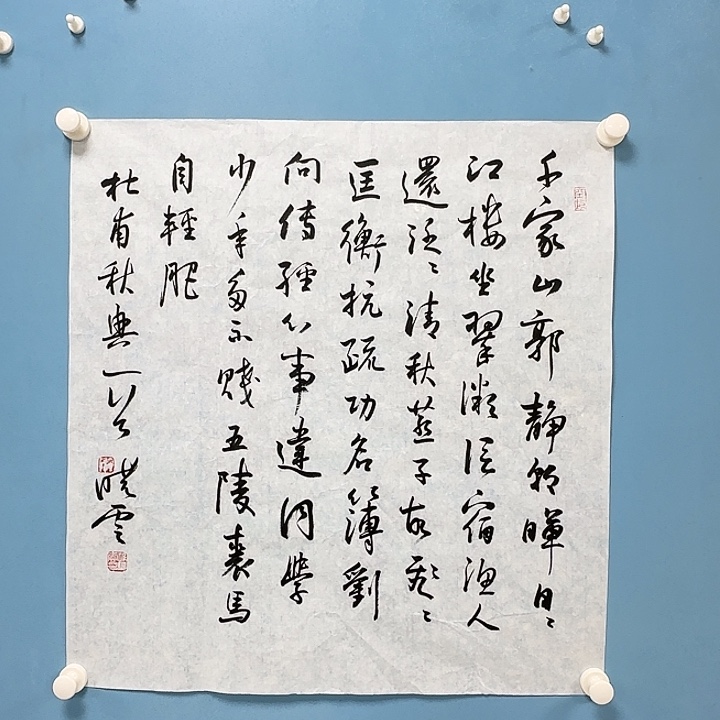 千家山郭靜朝暉日〻
江樓坐翠微信宿漁人
還泛〻清秋燕子故飛〻
匡衡抗疏功名薄劉
向傳經心事違同學
少年多不賤五陵裘馬
自輕肥
杜甫秋興一首 曉雲